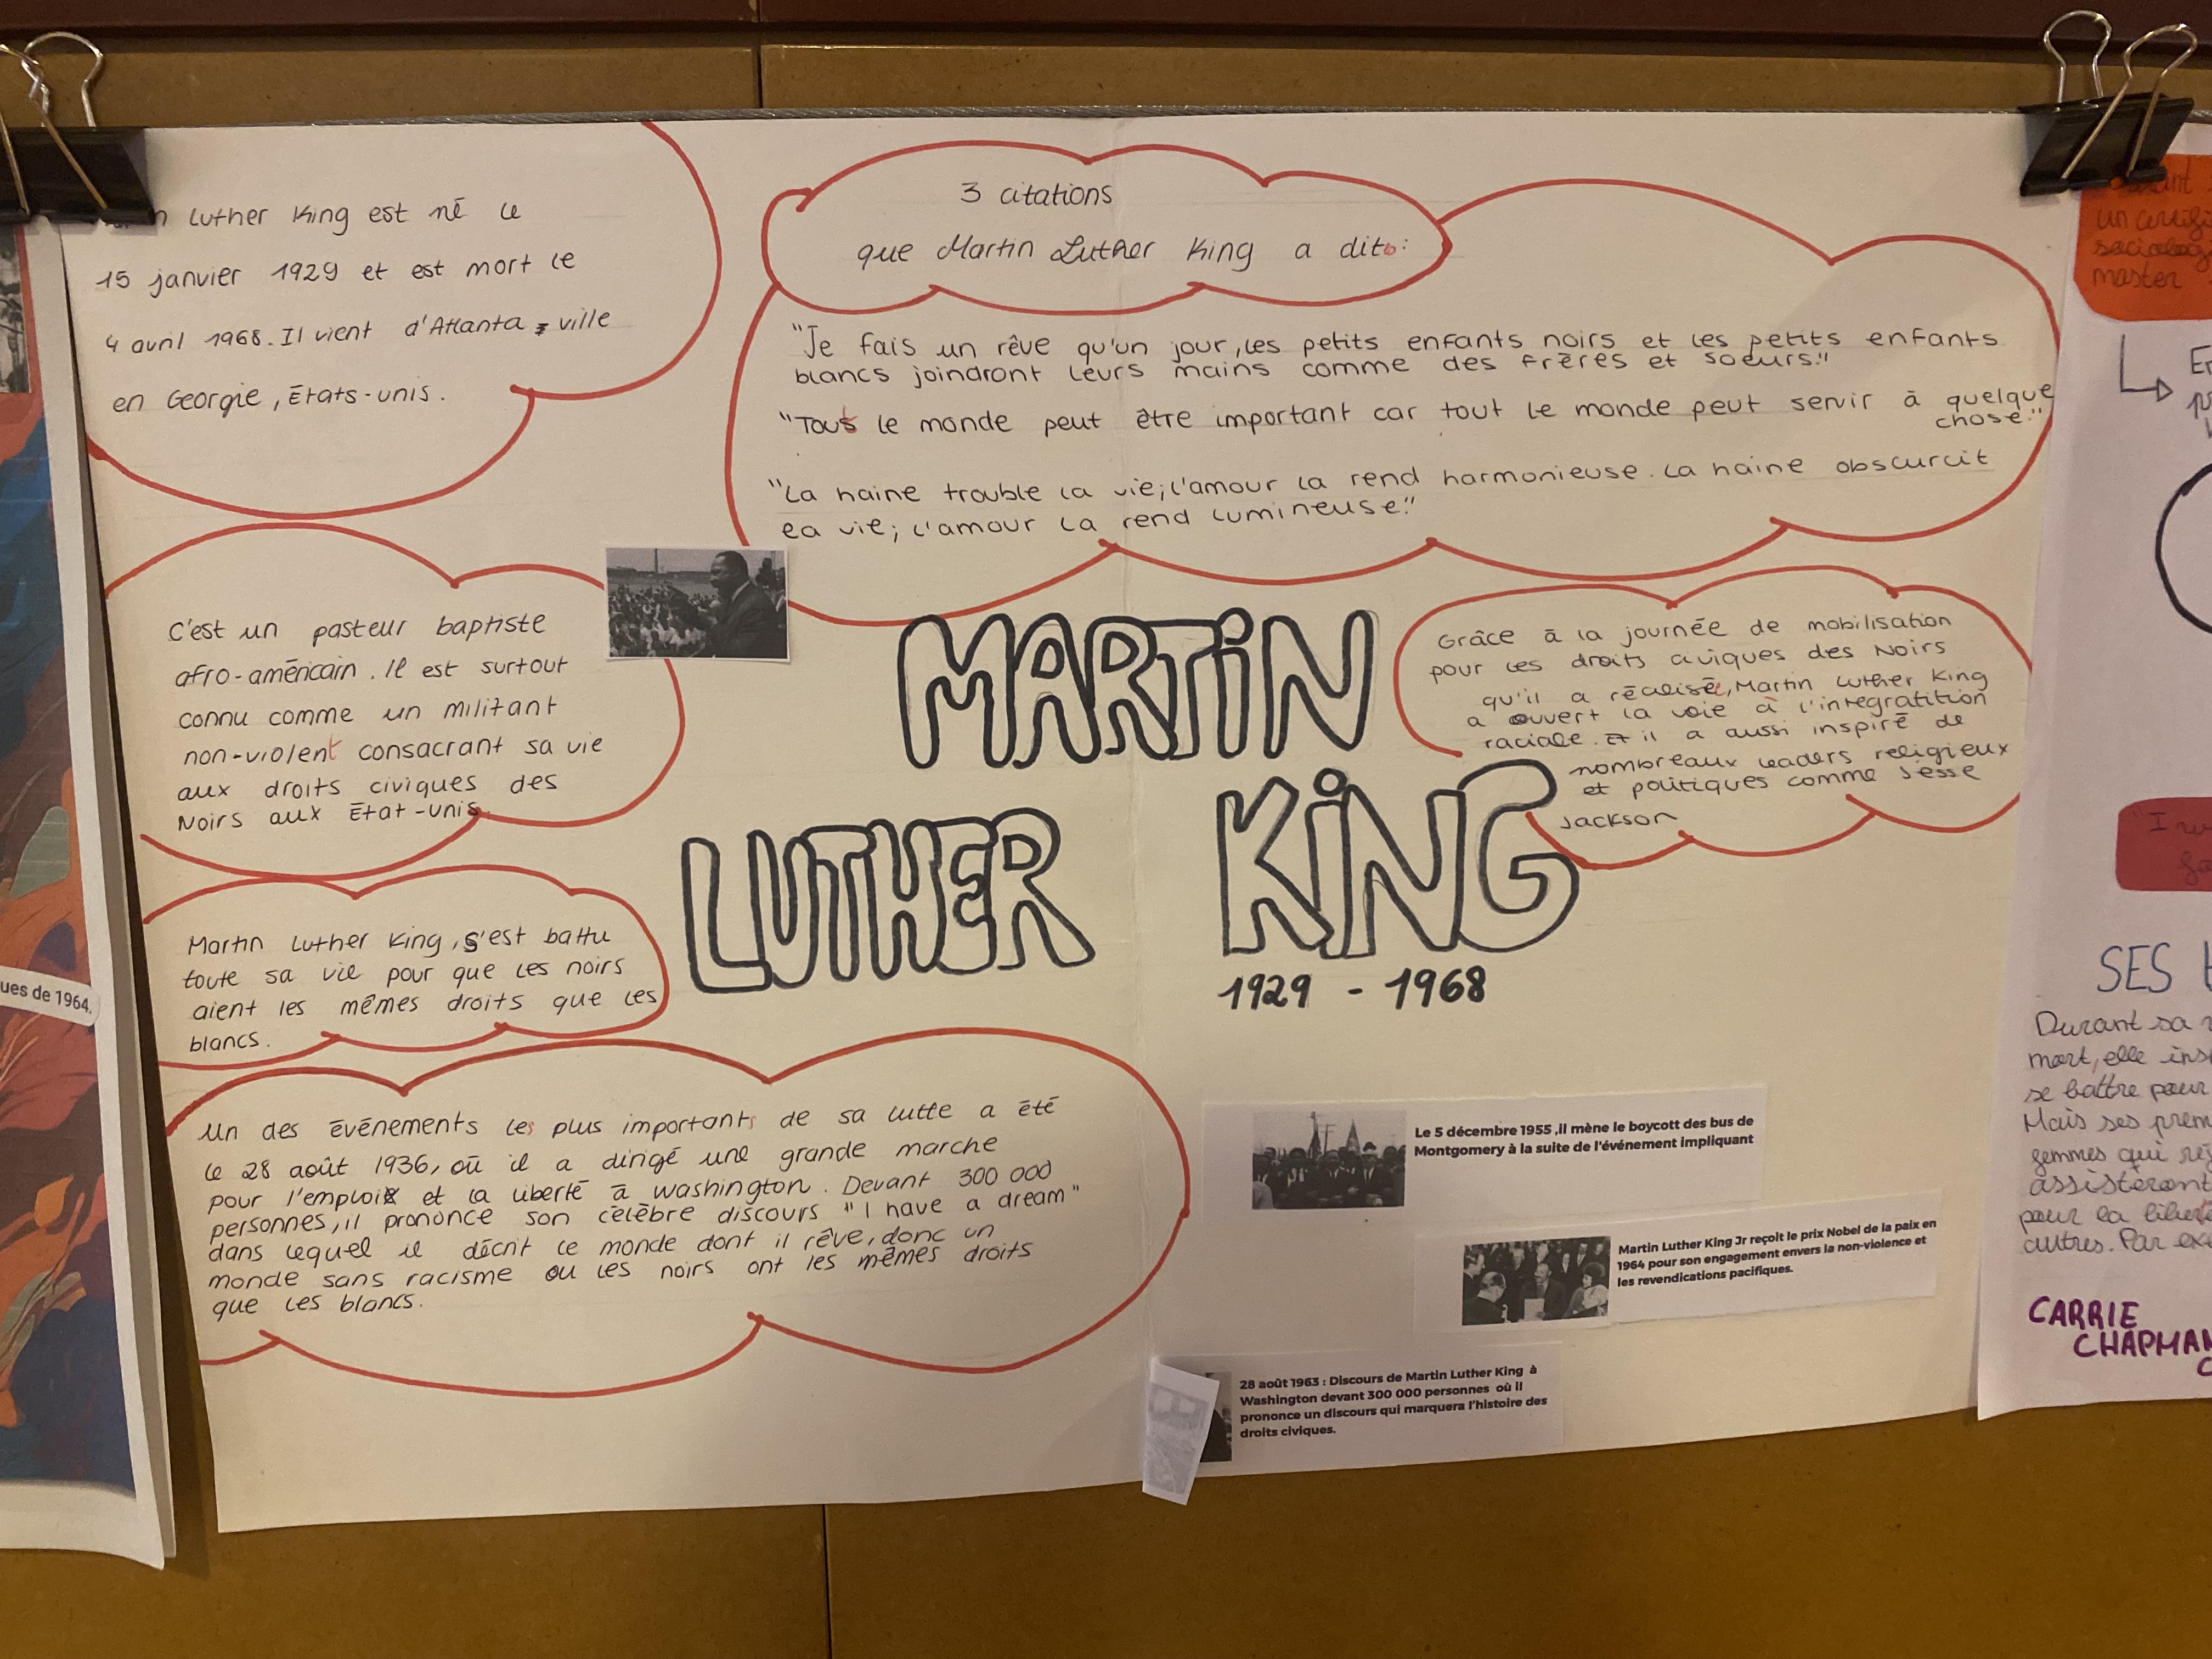 Luther King est né le
15 janvier 1929 et est mort le
4 avril 1968. Il vient d'Atlanta, ville
en Georgie, États-unis.
3 citations
que Martin Luther King a dit:
"Je fais un rêve qu'un jour, les petits enfants noirs et les petits enfants
blancs joindront leurs mains comme des frères et soeurs."
"Tout le monde peut être important car tout le monde peut servir à quelque
chose."
"La haine trouble la vie; l'amour la rend harmonieuse. La haine obscurcit
la vie; l'amour la rend lumineuse."
C'est un pasteur baptiste
afro-américain. Il est surtout
connu comme un militant
non-violent consacrant sa vie
aux droits civiques des
Noirs aux État-unis
MARTiN
LUTHER KiNG
1929 - 1968
Grâce à la journée de mobilisation
pour les droits civiques des Noirs
qu'il a réalisée, Martin Luther King
a ouvert la voie à l'integratition
raciale. Et il a aussi inspiré de
nombreaux leaders religieux
et politiques comme Jesse
Jackson
Martin Luther King, s'est battu
toute sa vie pour que les noirs
aient les mêmes droits que les
blancs.
Un des événements les plus importants de sa lutte a été
le 28 août 1936, où il a dirigé une grande marche
pour l'emploi et la liberté à Washington. Devant 300 000
personnes, il prononce son célèbre discours "I have a dream"
dans lequel il décrit le monde dont il rêve, donc un
monde sans racisme ou les noirs ont les mêmes droits
que les blancs.
Le 5 décembre 1955 ,il mène le boycott des bus de
Montgomery à la suite de l'événement impliquant
Martin Luther King Jr reçoit le prix Nobel de la paix en
1964 pour son engagement envers la non-violence et
les revendications pacifiques.
28 août 1963 : Discours de Martin Luther King à
Washington devant 300 000 personnes où il
prononce un discours qui marquera l'histoire des
droits civiques.
ues de 1964.
un
master
"I
SES
Durant sa
mort, elle
se battre pour
Mais ses prem
femmes qui
assistèrent
pour la
autres. Par
CARRIE
CHAPMAN